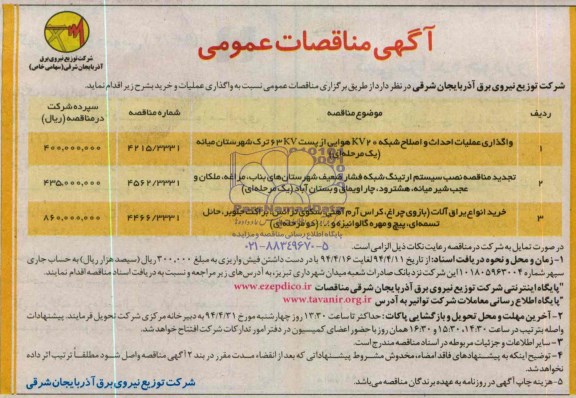 آگهی مناقصات عمومی
شرکت توزیع نیروی برق
آذربایجان شرقی (سهامی خاص)
شرکت توزیع نیروی برق آذربایجان شرقی در نظر دارد از طریق برگزاری مناقصات عمومی نسبت به واگذاری عملیات و خرید بشرح زیر اقدام نماید.
ردیف موضوع مناقصه شماره مناقصه سپرده شرکت در مناقصه (ریال)
۱ واگذاری عملیات احداث و اصلاح شبکه ۲۰ KV هوایی از پست ۶۳ KV ترک شهرستان میانه (یک مرحله‌ای) ۴۲۱۵/۳۳۳۱ ۴۰۰,۰۰۰,۰۰۰
۲ تجدید مناقصه نصب سیستم ارتینگ شبکه فشار ضعیف شهرستان‌های بناب، مراغه، ملکان و عجب شیر میانه، هشترود، چاراویماق و بستان آباد (یک مرحله‌ای) ۴۵۶۲/۳۳۳۱ ۴۳۵,۰۰۰,۰۰۰
۳ خرید انواع یراق آلات (بازوی چراغ، کراس آرم آهنی، سکوی ترانس، براکت جلوبر، حائل تسمه‌ای، پیچ و مهره گالوانیزه و ...) (دو مرحله‌ای) ۴۴۶۶/۳۳۳۱ ۸۶۰,۰۰۰,۰۰۰
پایگاه اطلاع رسانی مناقصه و مزایده
۰۲۱-۸۸۳۴۹۶۷۰-۵
در صورت تمایل به شرکت در مناقصه رعایت نکات ذیل الزامی است.
۱- زمان و محل و نحوه دریافت اسناد: از تاریخ ۹۴/۴/۱۱ لغایت ۹۴/۴/۱۶ با در دست داشتن فیش واریزی به مبلغ ۳۰۰,۰۰۰ ریال (سیصد هزار ریال) به حساب جاری
سپهر شماره ۰۱۰۱۸۰۵۹۶۳۰۰۴ این شرکت نزد بانک صادرات شعبه میدان شهرداری تبریز، به آدرس‌های زیر مراجعه و نسبت به دریافت اسناد مناقصه اقدام نمایند.
"پایگاه اینترنتی شرکت توزیع نیروی برق آذربایجان شرقی مناقصات www.ezepdico.ir"
"پایگاه اطلاع رسانی معاملات شرکت توانیر به آدرس www.tavanir.org.ir"
۲- آخرین مهلت و محل تحویل و بازگشایی پاکات: حداکثر تا ساعت ۱۳:۳۰ روز چهارشنبه مورخ ۹۴/۴/۳۱ به دبیرخانه مرکزی شرکت تحویل فرمایند. پیشنهادات
واصله بترتیب در ساعت ۱۴:۳۰، ۱۵:۳۰ و ۱۶:۳۰ همان روز با حضور اعضای کمیسیون در دفتر امور تدارکات شرکت افتتاح خواهد شد.
۳- سایر اطلاعات و جزئیات مربوطه در اسناد مناقصه مندرج است.
۴- توضیح اینکه به پیشنهادهای فاقد امضاء، مخدوش مشروط پیشنهاداتی که بعد از انقضاء مدت مقرر در بند ۲ آگهی مناقصه واصل شود مطلقاً ترتیب اثر داده
نخواهد شد.
۵- هزینه چاپ آگهی در روزنامه به عهده برندگان مناقصه می‌باشد.
شرکت توزیع نیروی برق آذربایجان شرقی